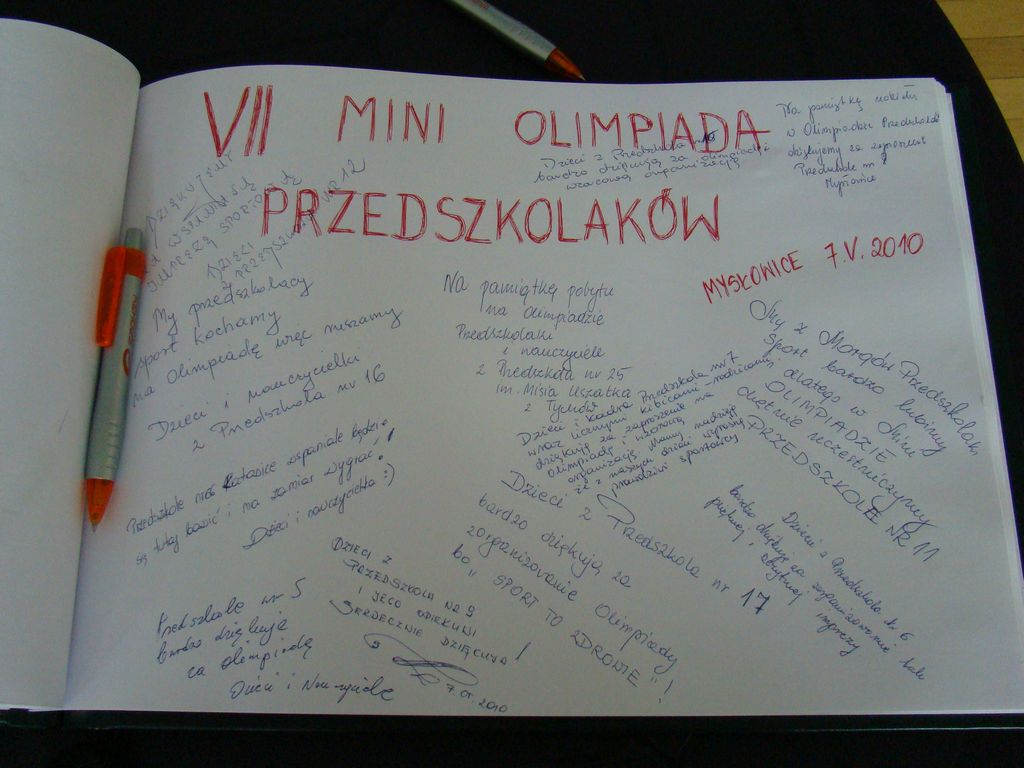 VII MINI OLIMPIADA
PRZEDSZKOLAKÓW
MYSŁOWICE 7.V.2010
Dzieci z Przedszkola nr 10
bardzo dziękują za olimpiadę i
wzorową organizację
Na pamiątkę
w Olimpiadzie Przedszkolaków
dziękujemy za zaproszenie
Przedszkole nr
Mysłowice
DZIĘKUJEMY
ZA WSPANIAŁĄ
IMPREZĘ SPORTOWĄ
DZIECI
Z PRZEDSZKOLA NR 12
My przedszkolacy
sport kochamy
na Olimpiadę więc ruszamy
Dzieci i nauczycielki
z Przedszkola nr 16
Przedszkole nr Katowice wspaniale będzie
się tutaj bawić i ma zamiar wygrać!
Dzieci i nauczycielka :)
Przedszkole nr 5
bardzo dziękuję
za olimpiadę
Dzieci i Nauczyciele
DZIECI Z
PRZEDSZKOLA NR 9
I JEGO OPIEKUNI
SERDECZNIE DZIĘKUJĄ!
7.05.2010
Na pamiątkę pobytu
na olimpiadzie
Przedszkolaki
i nauczyciele
z Przedszkola nr 25
im. Misia Uszatka
z Tychów
Dzieci i kadra Przedszkola nr 7
wraz licznymi kibicami - rodzicami
dziękują za zaproszenie na
olimpiadę i wzorową
organizację. Mamy nadzieję
że z naszych dzieci wyrosną
prawdziwi sportowcy
Dzieci z Przedszkola nr 17
bardzo dziękują za
zorganizowanie Olimpiady
bo " SPORT TO ZDROWIE "!
My z Morgów Przedszkolaki,
sport bardzo lubimy
dlatego w
OLIMPIADZIE
chętnie uczestniczymy
PRZEDSZKOLE NR 11
Dzieci z Przedszkola nr 6
bardzo dziękują za zorganizowanie tak
pięknej i imprezy